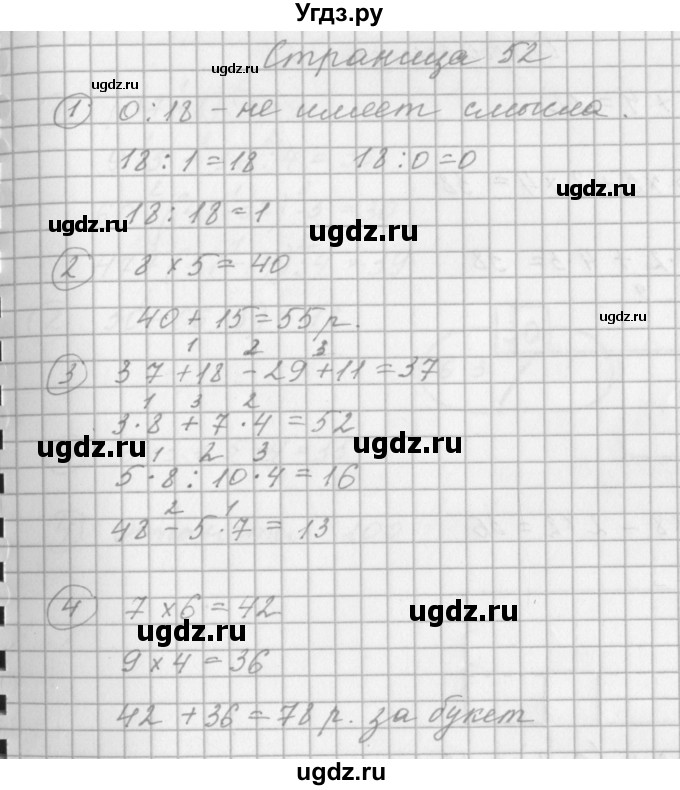 Угдз.ру
Страница 52
ugdz.ru ugdz.ru
① 0:18 – не имеет смысла.
18 : 1 = 18 18 : 0 = 0
ugdz.ru
18 : 18 = 1
ugdz.ru ugdz.ru
② 8 × 5 = 40
40 + 15 = 55 р.
ugdz.ru
1 2 3
③ 37 + 18 - 29 + 11 = 37
1 3 2
3 · 8 + 7 · 4 = 52
ugdz.ru ugdz.ru
1 2 3
5 · 8 : 10 · 4 = 16
2 1
48 - 5 · 7 = 13
④ 7 × 6 = 42
ugdz.ru ugdz.ru
9 × 4 = 36
42 + 36 = 78 р. за букет
ugdz.ru